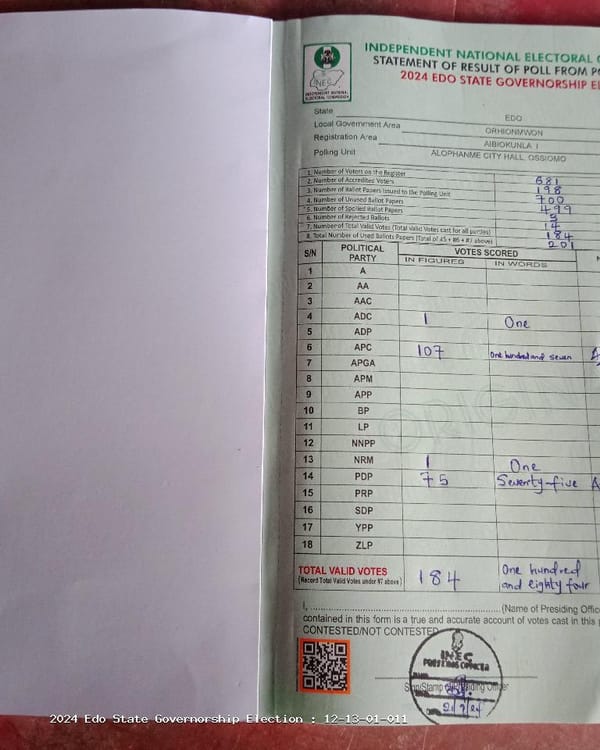 INDEPENDENT NATIONAL ELECTORAL
STATEMENT OF RESULT OF POLL FROM
2024 EDO STATE GOVERNORSHIP
INEC
INDEPENDENT NATIONAL ELECTORAL COMMISSION
State EDO
Local Government Area ORHIONMWON
Registration Area AIBIOKUNLA I
Polling Unit ALOPHANME CITY HALL, OSSIOMO
1. Number of Voters on the Register 681
2. Number of Accredited Voters 198
3. Number of Ballot Papers Issued to the Polling Unit 700
4. Number of Unused Ballot Papers 499
5. Number of Spoiled Ballot Papers 3
6. Number of Rejected Ballots 14
7. Number of Total Valid Votes (Total Valid Votes cast for all parties) 184
8. Total Number of Used Ballots Papers (Total of #5 + #6 + #7 above) 201
S/N POLITICAL PARTY VOTES SCORED
IN FIGURES IN WORDS
1 A
2 AA
3 AAC
4 ADC 1 One
5 ADP
6 APC 107 One hundred and seven
7 APGA
8 APM
9 APP
10 BP
11 LP
12 NNPP
13 NRM 1 One
14 PDP 75 Seventy-five
15 PRP
16 SDP
17 YPP
18 ZLP
TOTAL VALID VOTES 184 One hundred
(Record Total Valid Votes under #7 above) and eighty four
I, (Name of Presiding
contained in this form is a true and accurate account of votes cast in this
CONTESTED/NOT CONTESTED
INEC
PRESIDING OFFICER
Sign/Stamp of Presiding Officer
2024 Edo State Governorship Election : 12-13-01-011